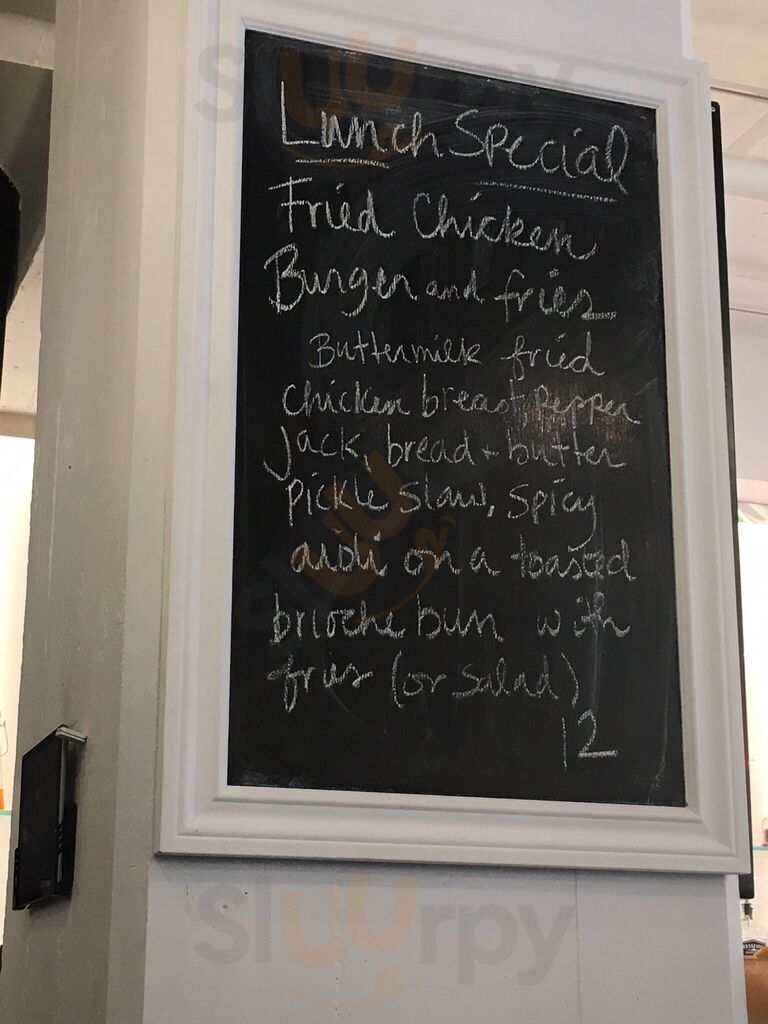 Lunch Special
Fried Chicken
Burger and fries
Buttermilk fried
chicken breast, pepper
jack, bread + butter
pickle slaw, spicy
aioli on a toasted
brioche bun with
fries (or salad)
12
Sluurpy
Sluurpy
Sluurpy